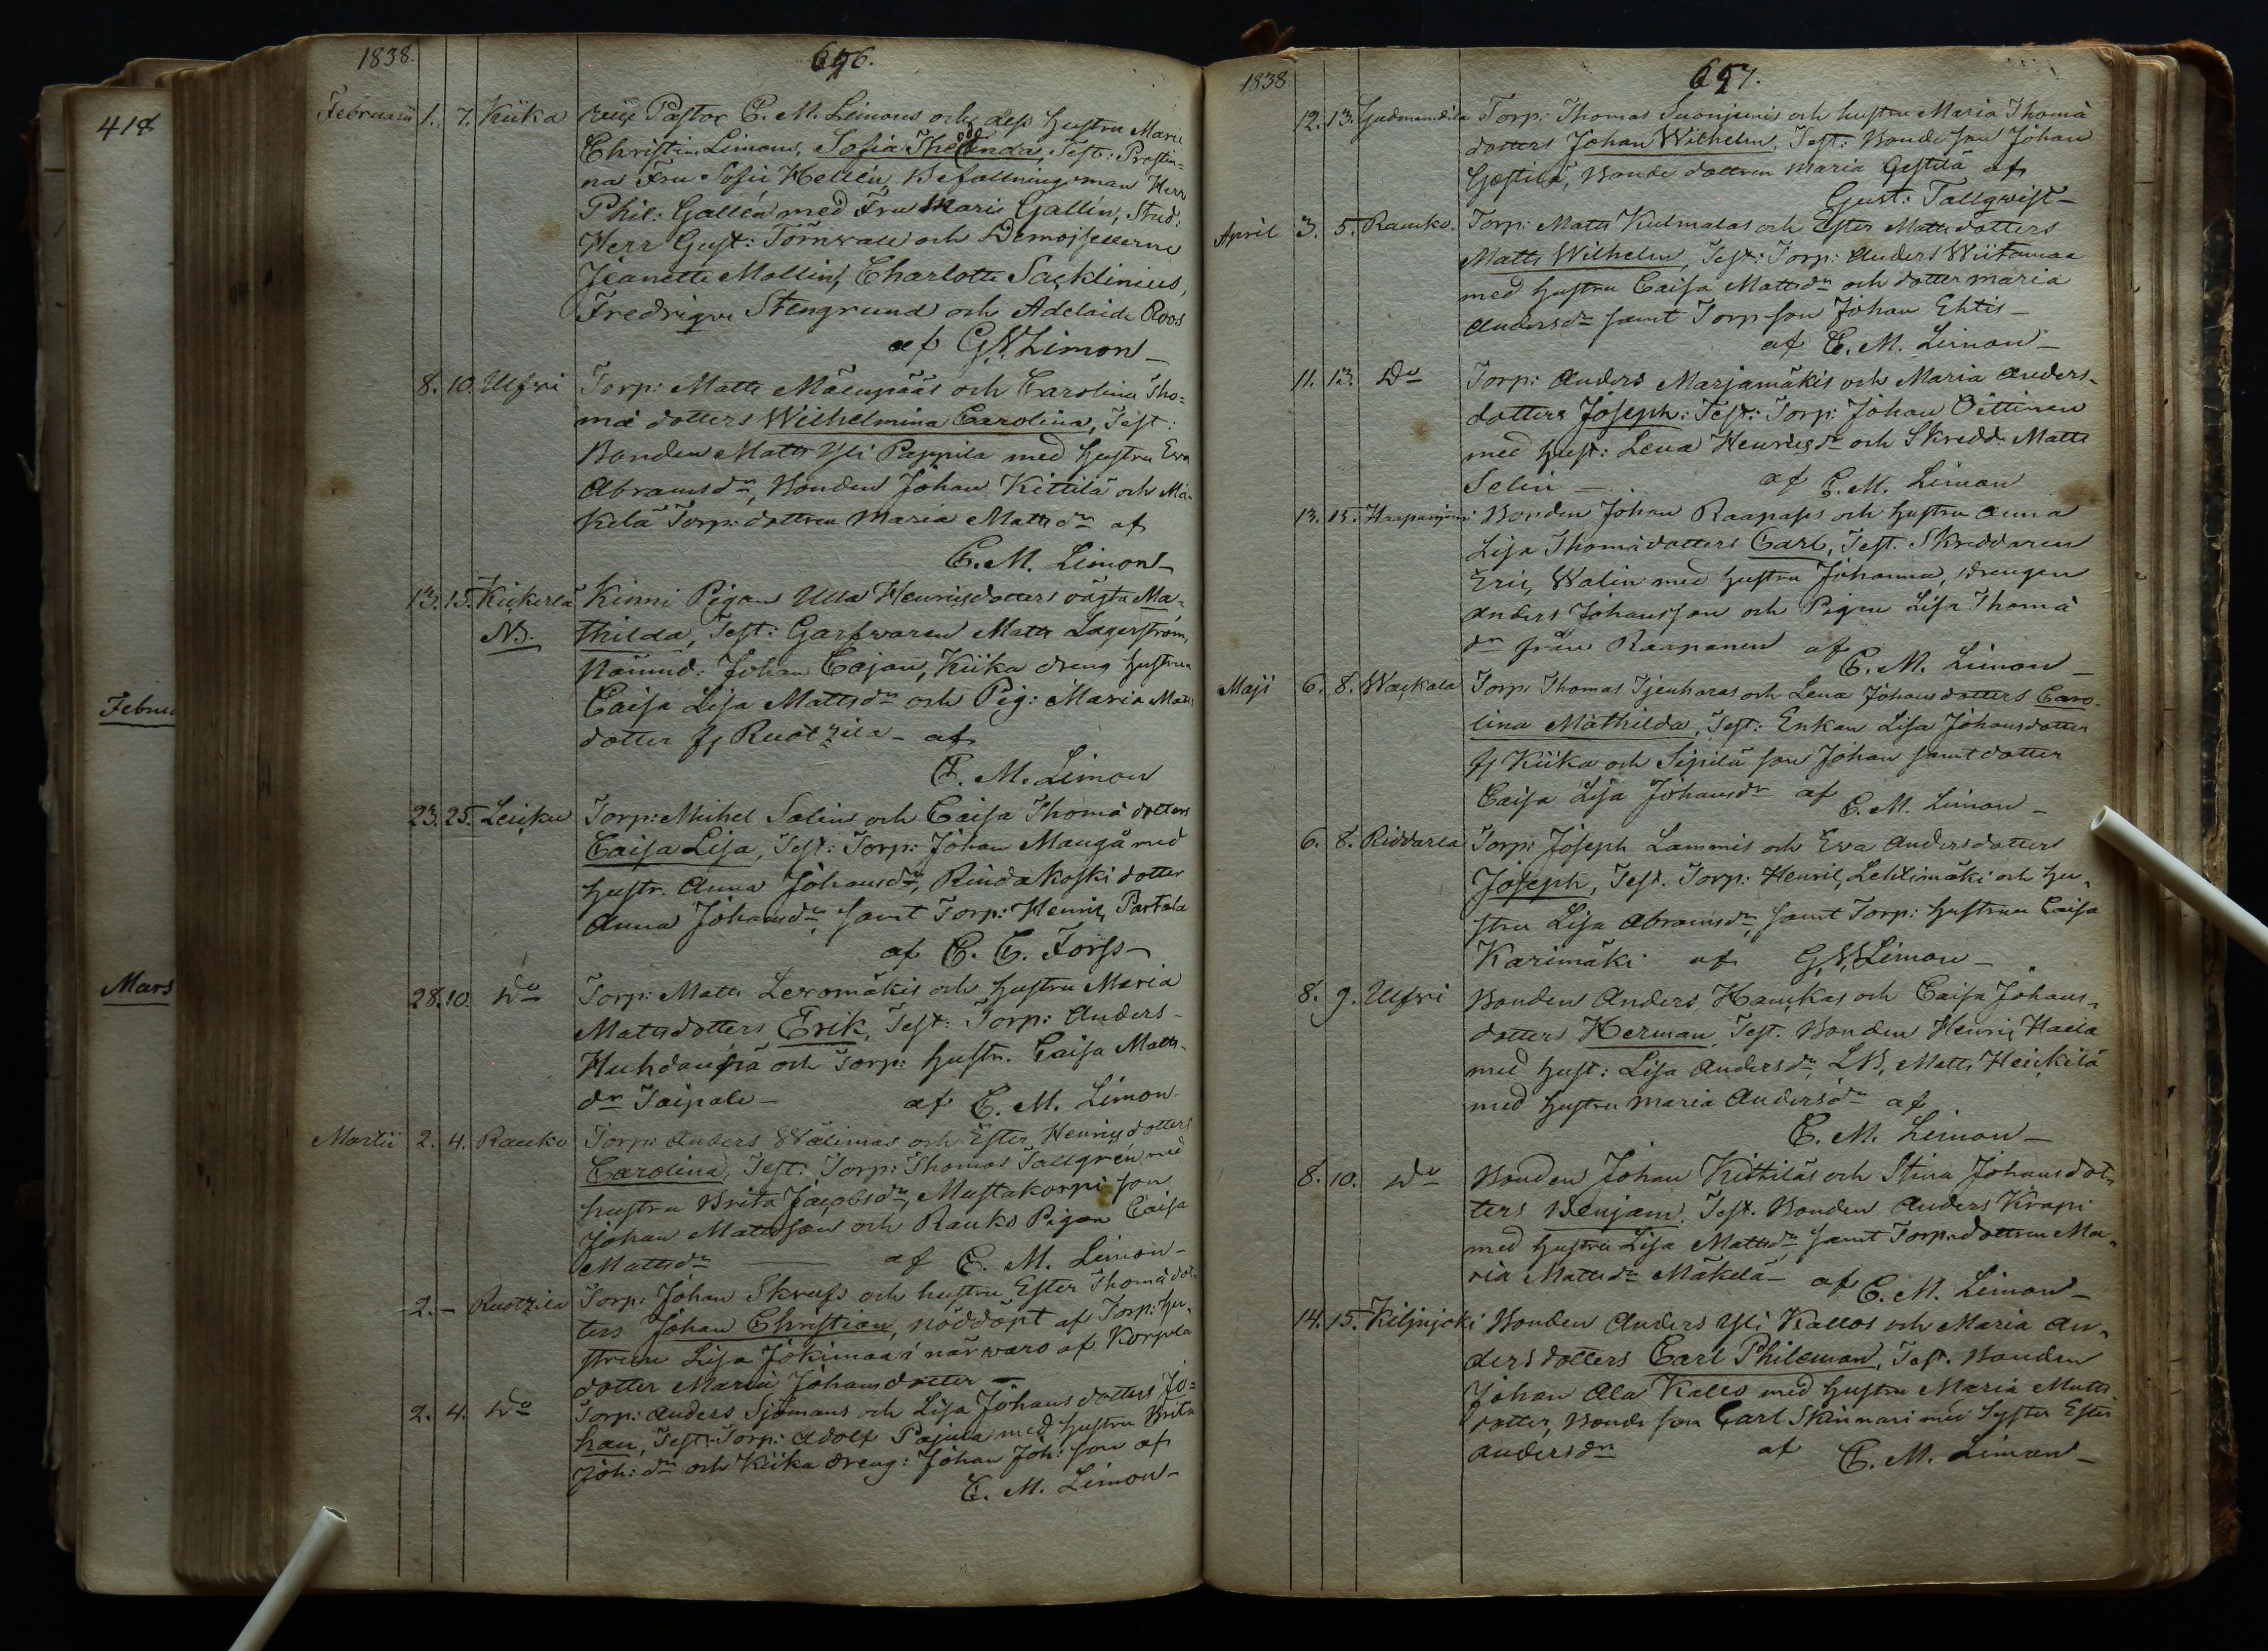 418
Februa
Mars
1838.
696.
Februarii 1. 7. Kiika Vice Pastor C. M. Limons och dess hustru Marie
Christin Limons, Sofia Theodolinda, Test: Prostin-
na Fru Sofie Hellén, Befallningsman Herr
Phil: Gallén med Fru Marie Gallén, Stud:
Herr Gust: Törnwall och Demoisellerne
Jeanette Mollin, Charlotte Sacklinius,
Fredrique Stengrund och Adelaide Roos
af G. N. Limon
8. 10. Ulfwi Torp: Matts Mäenpääs och Carolina Tho-
mä dotters Wilhelmina Carolina, Test:
Bonden Matts Yli Pappila med hustru Eva
Abramsdr, Bonden Johan Kittilä och Mä-
kelä Torp: dottren Maria Mattsdr af
C. M. Limon
13. 15. Kickerlä Kinni Pigan Ulla Henricsdotters oägta Ma-
NB. thilda, Test: Garfwaren Matts Lagerström,
Nämnd: Johan Cajan, Kiika dreng hustrun
Caisa Lisa Mattsdr och Pig: Maria Matts
dotter fr Ruotzila - af
C. M. Limon
23. 25. Leiku Torp: Michel Salins och Caisa Thomä dotters
Caisa Lisa, Test: Torp: Johan Mangå med
hustr. Anna Johansdr, Rindakoski dotter
Anna Johansdr, samt Torp: Henric Partala
af C. G. Forss
28. 10. Do Torp: Matts Levomäkis och hustru Maria
Mattsdotters Erik, Test: Torp: Anders
Huhdanpä och Torp: hustr. Caisa Matts-
dr Taipale - af C. M. Limon
Martii 2. 4. Rauko Torp: Anders Wälimas och Ester Henricsdotters
Carolina, Test: Torp: Thomas Tallgren med
hustru Brita Jacobsdr, Mustakorpi son
Johan Mattsson och Rauko Pigan Caisa
Mattsdr af C. M. Limon
2. - Ruotzila Torp: Johan Skrufs och hustru Ester Thomä dot-
ters Johan Christian, nöddöpt af Torp: hu-
strun Lisa Jokimaa i närwaro af Korpela
dotter Maria Johansdotter
2. 4. Do Torp: Anders Sjömans och Lisa Johansdotters Jo-
han, Test: Torp: Adolf Pajula med hustru Brita
Joh: dr och Kiika dreng: Johan Joh: son af
C. M. Limon
1838
697.
12. 13. Gudmandila Torp: Thomas Suonjuris och hustru Maria Thomä
dotters Johan Wilhelm, Test: Bondeson Johan
Gestilä, Bonde dottren Maria Gestilä af
Gust: Tallqvist
April 3. 5. Rauko. Torp: Matts Kulmalas och Ester Mattsdotters
Matts Wilhelm, Test: Torp: Anders Wiitamaa
med hustru Caisa Mattsdr och dotter Maria
Andersdr samt Torp: son Johan Ehtis
af C. M. Limon
11. 13. Do Torp: Anders Marjamäkis och Maria Anders-
dotters Joseph: Test: Torp: Johan Oittinen
med hust: Lena Henricsdr och Skredd: Matts
Selin af C. M. Limon
13. 15. Haapaniemi Bonden Johan Raapanas och hustru Anna
Lisa Thomädotters Carl, Test. Skreddaren
Eric Walin med hustru Johanna, drengen
Anders Johansson och Pigan Lisa Thomä
dr från Raapanen af C. M. Limon
Maji 6. 8. Wackala Torp: Thomas Tjenharas och Lena Johansdotters Caro-
lina Mathilda, Test: Enkan Lisa Johansdotter
fr Kiika och Sipilä son Johan samt dotter
Caisa Lisa Johansdr af C. M. Limon
6. 8. Riddarla Torp: Joseph Lammis och Eva Andersdotters
Joseph, Test. Torp: Henric Lehtimäki och hu-
stru Lisa Abramsdr, samt Torp: hustrun Caisa
Karimäki af G. N. Limon
8. 9. Ulfwi Bonden Anders Hauckas och Caisa Johans-
dotters Herman, Test. Bonden Henric Haela
med hust: Lisa Andersdr, LB, Matts Heickilä
med hustru Maria Andersdr af
C. M. Limon
8. 10. Do Bonden Johan Kittiläs och Stina Johansdot-
ters Benjam. Test. Bonden Anders Krapi
med hustru Lisa Mattsdr samt Torp: dottren Ma-
ria Mattsdr Mäkelä af C. M. Limon
14. 15. Kiljnjoki Bonden Anders Yli Kallos och Maria An-
dersdotters Carl Phileman, Test. Bonden
Johan Ala Kallo med hustru Maria Matts-
dotter, Bonde son Carl Skinnari med Syster Ester
Andersdr af C. M. Limon